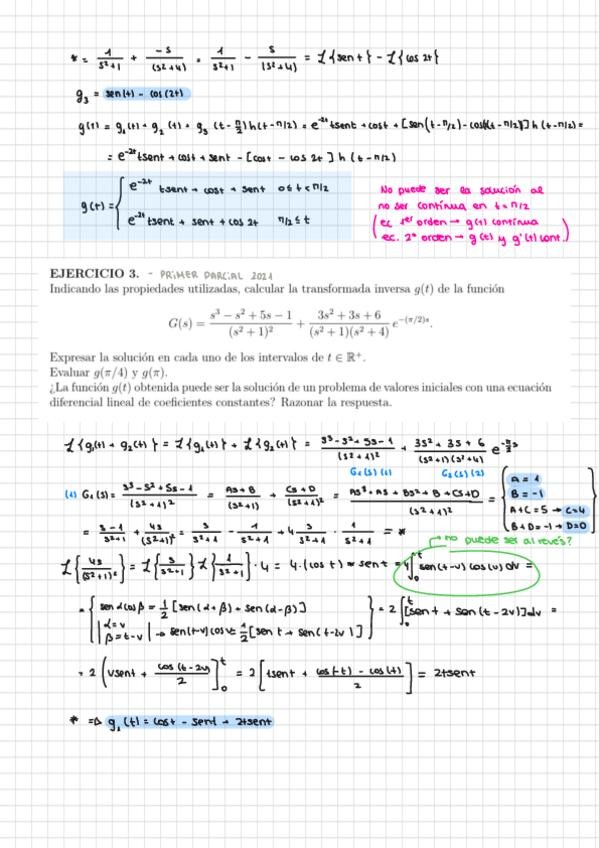 * = 1/(s²+1) + -s/(s²+4) = 1/(s²+1) - s/(s²+4) = L{sen t} - L{cos 2t}
g₃ = sen(t) - cos(2t)
g(t) = g₁(t) + g₂(t) + g₃(t-π/2)h(t-π/2) = e^(-2t) t sent + cost + [sen(t-π/2) - cos(2(t-π/2))] h(t-π/2) =
= e^(-2t) t sent + cost + sent - [cost - cos 2t] h(t-π/2)
g(t) = { e^(-2t) t sent + cost + sent 0≤t<π/2
e^(-2t) t sent + sent + cos 2t π/2≤t
No puede ser la solución al
no ser continua en t=π/2
(ec 1er orden → g(t) continua
ec. 2º orden → g(t) y g'(t) cont.)
EJERCICIO 3. - PRIMER PARCIAL 2021
Indicando las propiedades utilizadas, calcular la transformada inversa g(t) de la función
G(s) = (s³ − s² + 5s − 1)/(s² + 1)² + (3s² + 3s + 6)/((s² + 1)(s² + 4)) e^(−(π/2)s).
Expresar la solución en cada uno de los intervalos de t ∈ ℝ⁺.
Evaluar g(π/4) y g(π).
¿La función g(t) obtenida puede ser la solución de un problema de valores iniciales con una ecuación
diferencial lineal de coeficientes constantes? Razonar la respuesta.
L{g₁(t) + g₂(t)} = L{g₁(t)} + L{g₂(t)} = (s³-s²+5s-1)/(s²+1)² + (3s²+3s+6)/((s²+1)(s²+4)) e^(-π/2 s)
G₁(s) (1) G₂(s) (2)
(1) G₁(s) = (s³-s²+5s-1)/(s²+1)² = (As+B)/(s²+1) + (Cs+D)/(s²+1)² = (As³+As+Bs²+B+Cs+D)/(s²+1)² = { A=1
B=-1
A+C=5 → C=4
B+D=-1 → D=0
= (s-1)/(s²+1) + 4s/(s²+1)² = s/(s²+1) - 1/(s²+1) + 4 s/(s²+1) · 1/(s²+1) = *
→ no puede ser al revés?
L{4s/(s²+1)²} = L{s/(s²+1)} L{1/(s²+1)} · 4 = 4·(cos t) * sent = 4∫₀ᵗ sen(t-v) cos(v) dv =
= { sen α cos β = 1/2 [sen(α+β) + sen(α-β)]
| α=v
β=t-v | → sen(t-v) cos v = 1/2 [sen t + sen(t-2v)] } = 2∫₀ᵗ [sent + sen(t-2v)]dv =
= 2 (vsent + cos(t-2v)/2]₀ᵗ = 2 [tsent + (cos(-t) - cos(t))/2] = 2tsent
* => g₁(t) = cost - sent + 2tsent